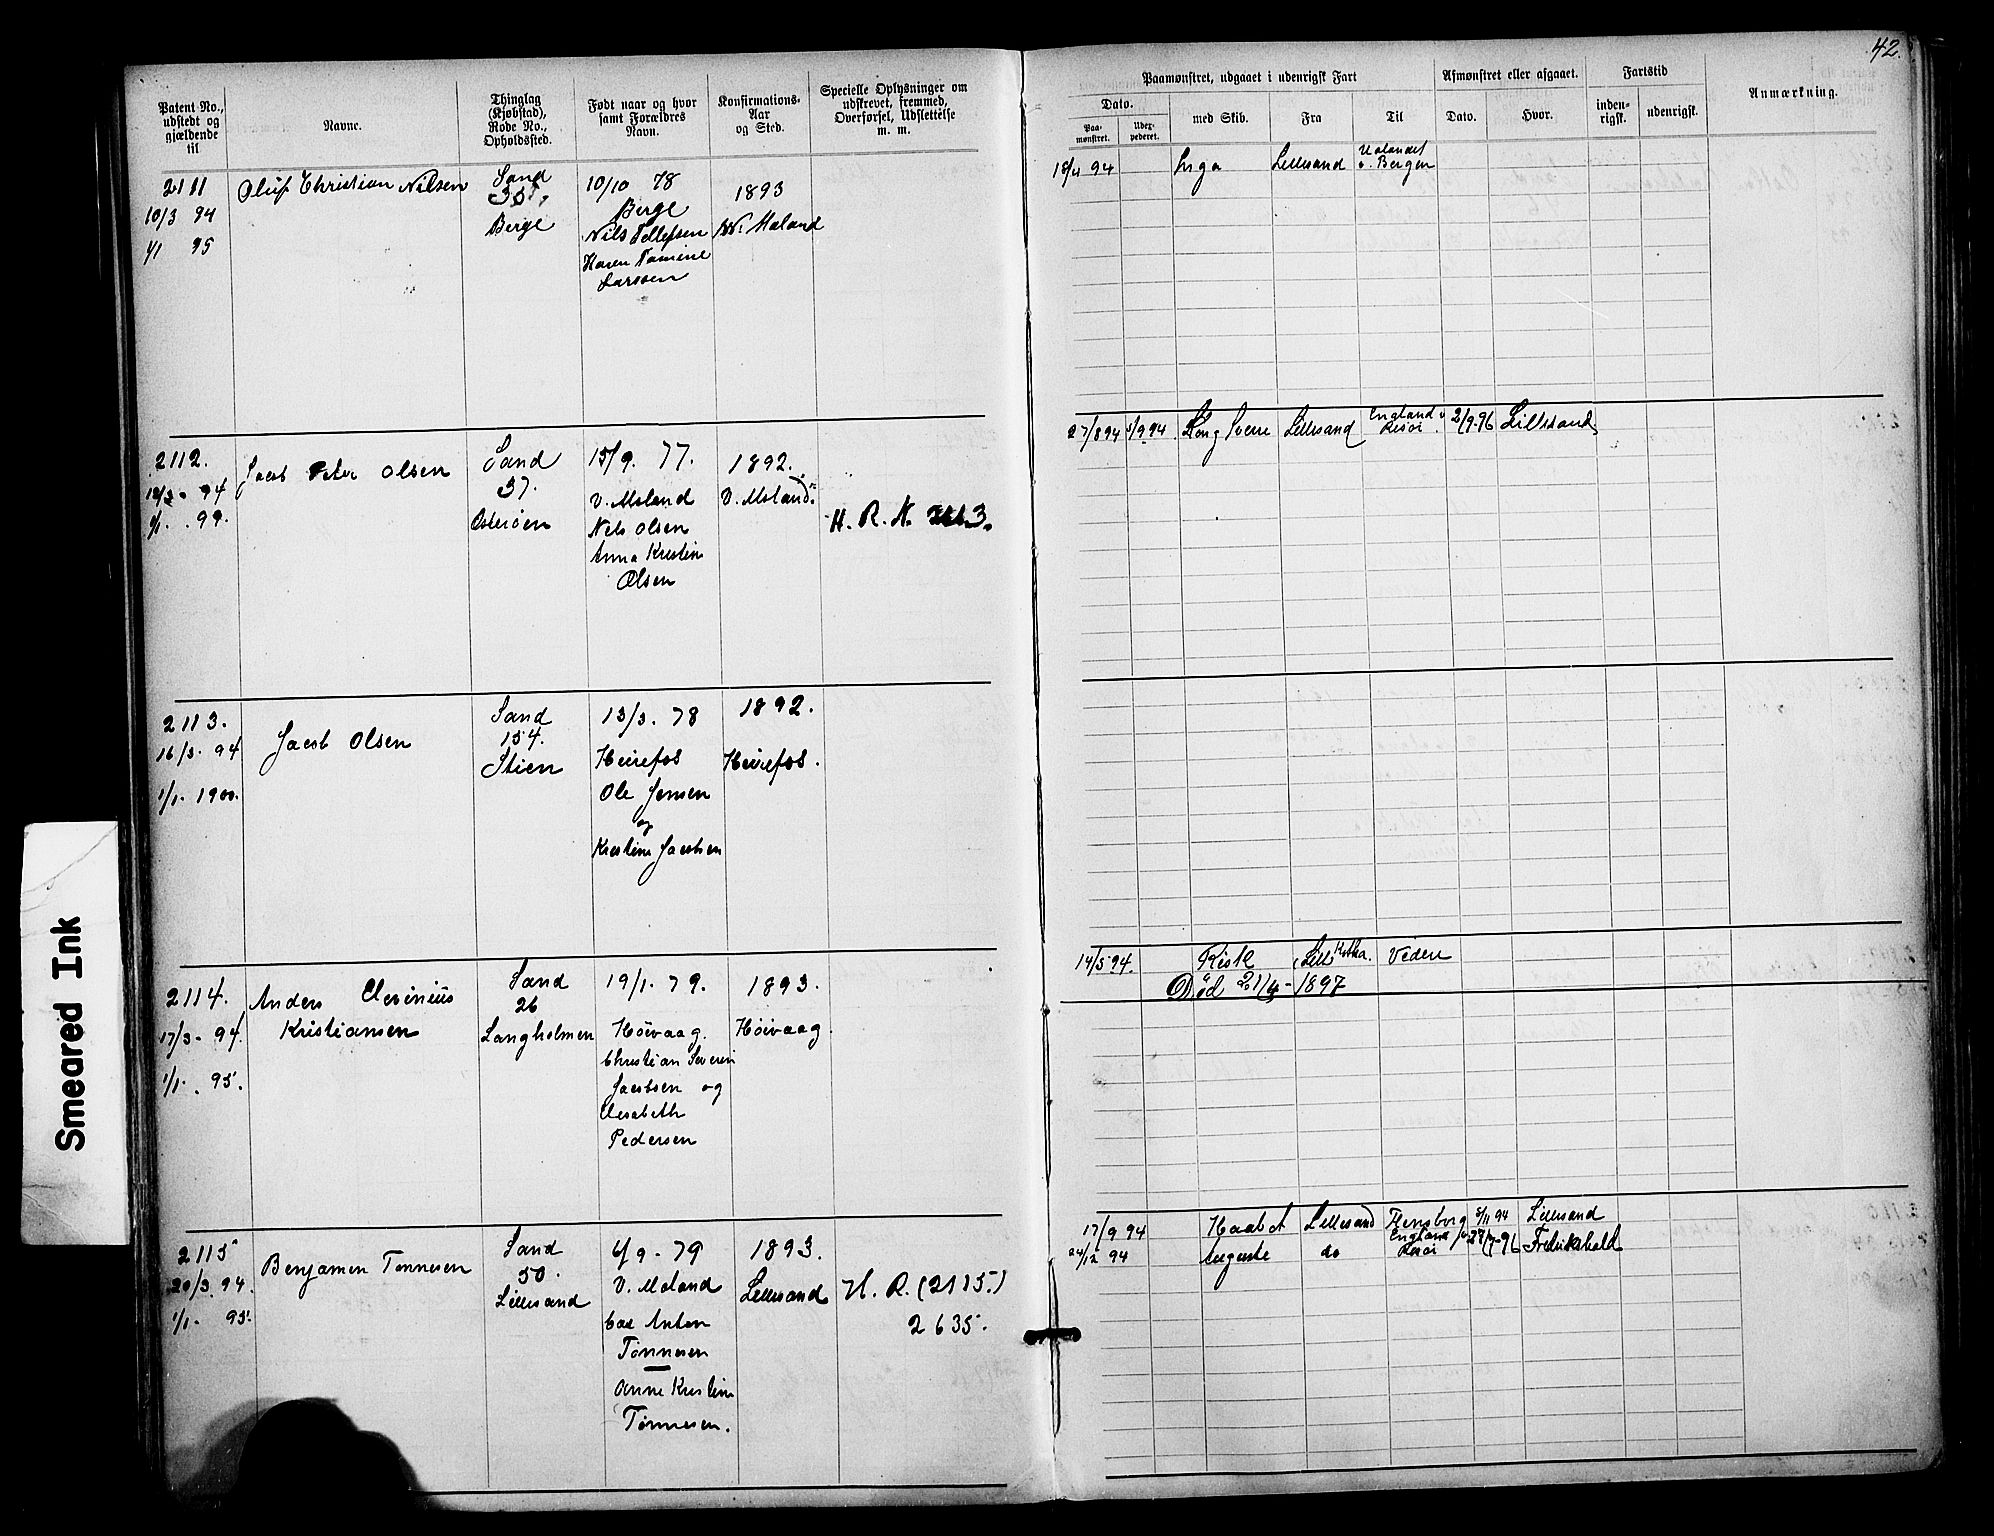 42.
Patent No., udstedt og gjældende til
Navne.
Thinglag (Kjøbstad), Rode No., Opholdssted.
Født naar og hvor samt Forældres Navn.
Konfirmations-Aar og Sted.
Specielle Oplysninger om udskrevet, fremmed, Overførsel, Udslettelse m. m.
Paamønstret, udgaaet i udenrigsk Fart
Afmønstret eller afgaaet.
Fartstid
Anmærkning.
Dato.
Paa-mønstret.
Udex-pederet.
med Skib.
Fra
Til
Dato.
Hvor.
inden-rigsk.
udenrigsk.
2111
10/3 94
1/1 95
Oluf Christian Nilsen
Sand
Berge
10/10 78
Berge
Nils Tellefsen
Karen Tomine
Larssen
1893
V. Moland
18/4 94
Inga
Lillesand
Udlandet
v. Bergen
2112.
1/1. 99.
Jacob Peter Olsen
Sand
37.
Osterøen
15/9. 77.
V. Moland
Nels Olsen
Anna Kristin
Olsen
1892.
V. Moland.
H. R. N.
27/8 94
5/9 94
Kong Sverre
Lillesand
England v
Risør.
2/9.96
Lillesand
2113.
16/3. 94
1/1. 1900.
Jacob Olsen
Sand
154.
Stien
13/3. 78
Heirefos
Ole Jensen
og
Kristine Jacobsen
1892.
Heirefos.
2114.
17/3. 94.
1/1. . 95.
Anders
Kristiansen
Sand
26
Langholmen
19/1. 79.
Höivaag.
Christian Severin
Jacobsen og
Elesabeth
Pedersen
1893.
Höivaag.
14/5 94.
Risk
Lill
Død 21/4 - 1897
2115
20/3. 94.
1/1. 95.
Benjamen Tønnesen
Sand
50.
Lillesand
6/9 - 79
V. Moland
Anton
Tønnesen
Anne Kristine
Tønnesen.
1893.
Lillesand
H. R. (2115.)
2635.
17/9 94
Haabet
Lillesand
Flensborg
5/11 94
Lillesand
24/12 94
Auguste
do
England v
Risør
Fredrikshald
Smeared Ink